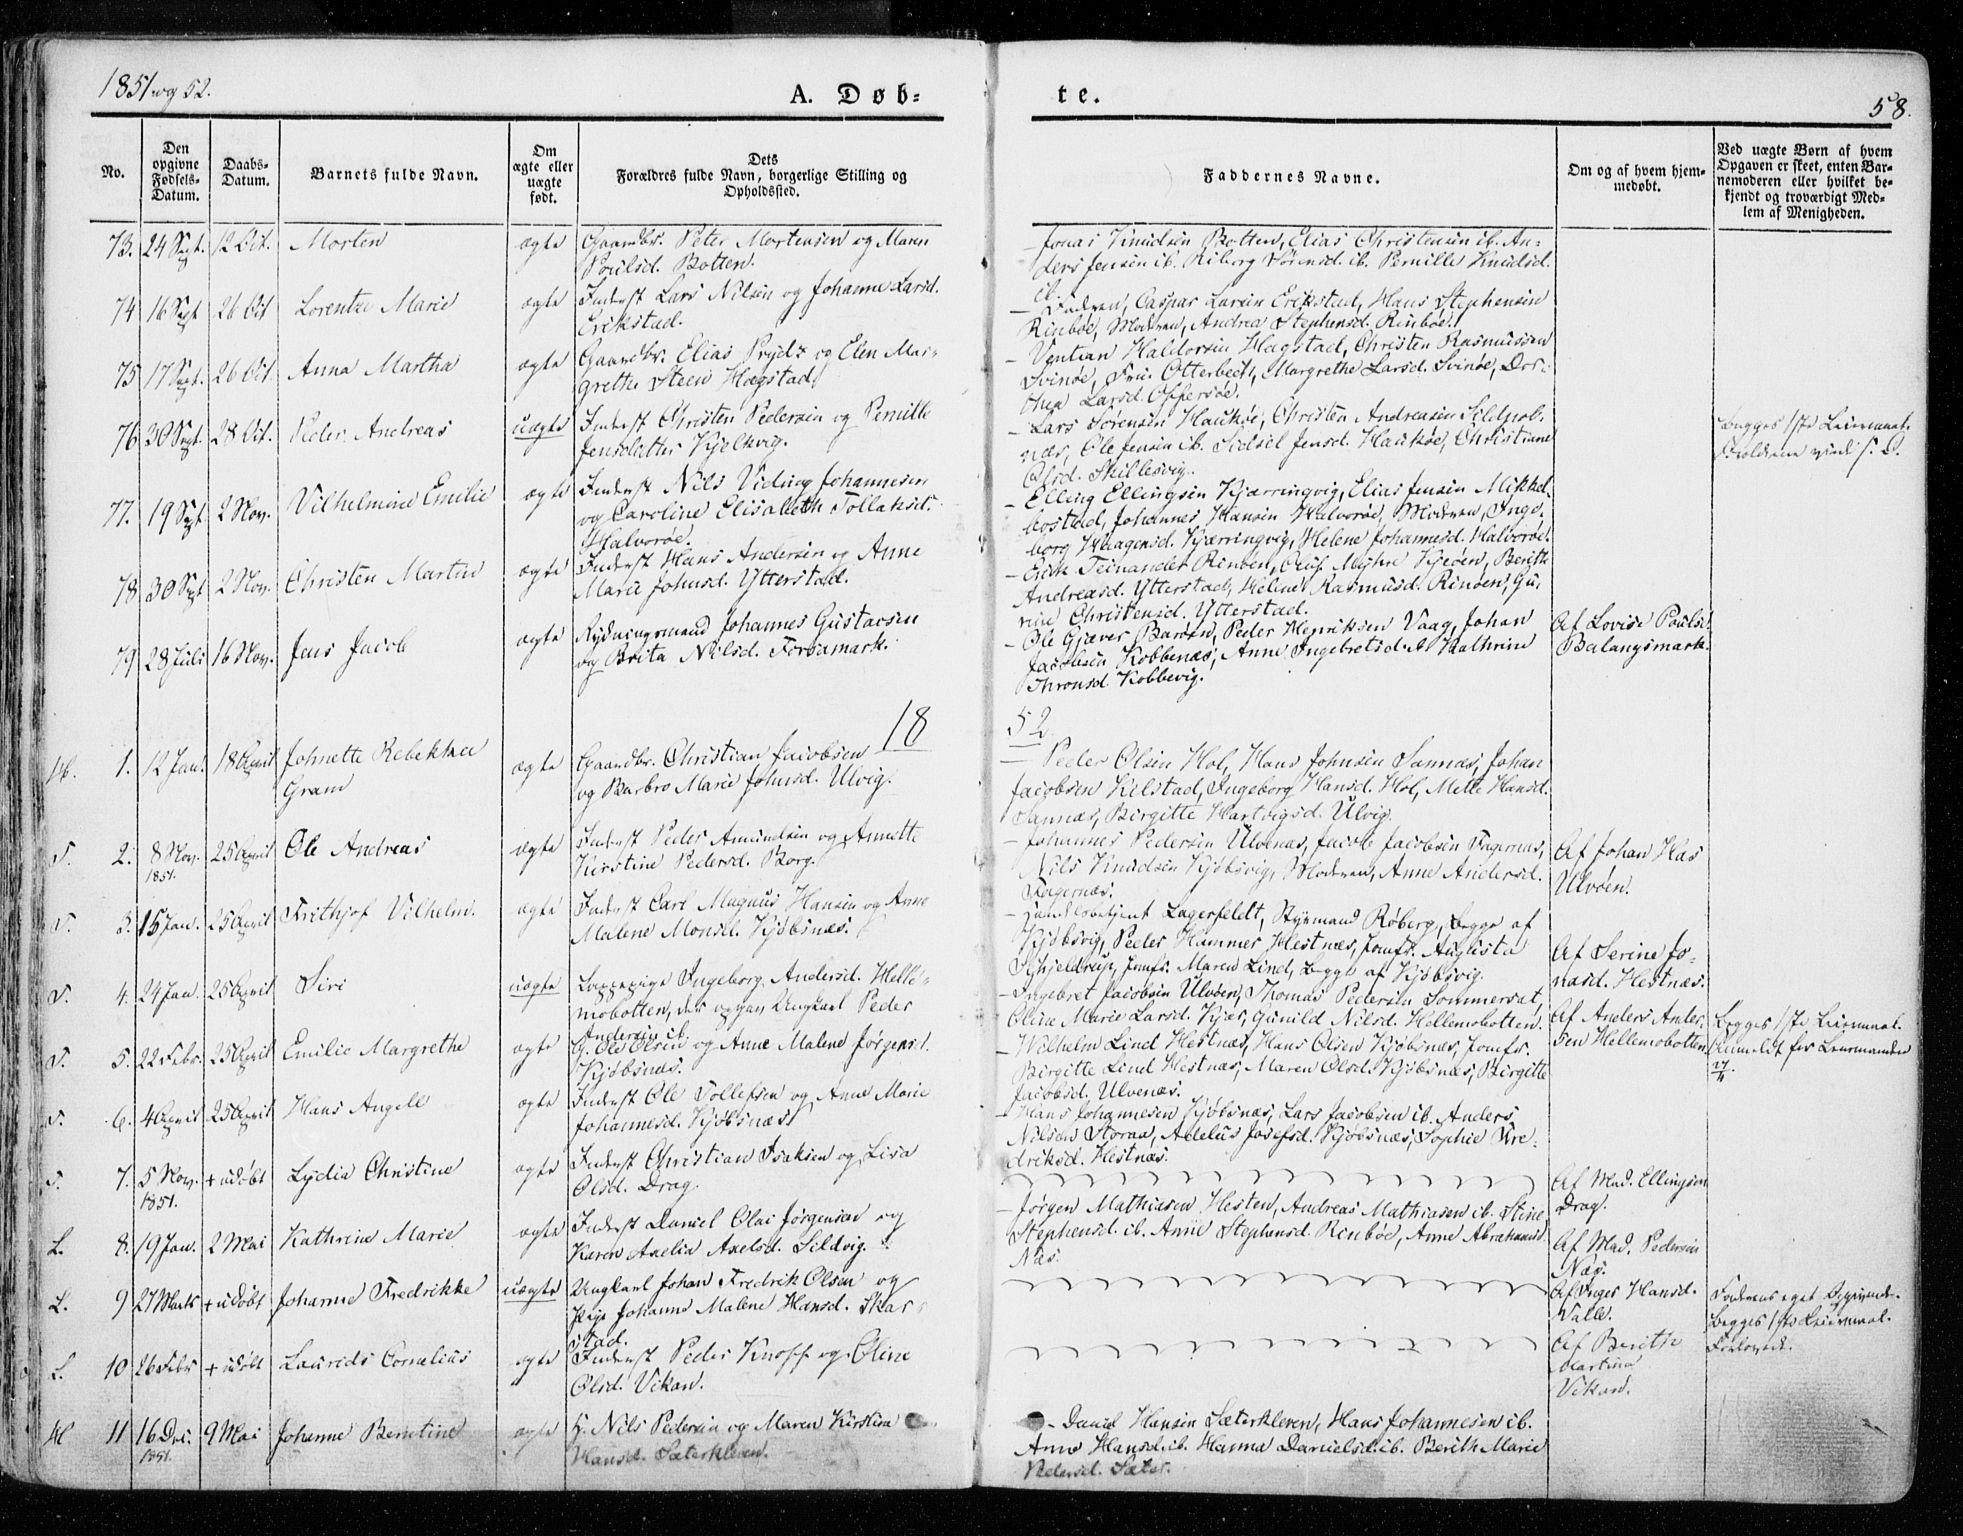 1851 og 52.
A. Døb-
te.
58.
No.
Den opgivne Fødsels-Datum.
Daabs-Datum.
Barnets fulde Navn.
Om ægte eller uægte født.
Dets Forældres fulde Navn, borgerlige Stilling og Opholdssted.
Faddernes Navne.
Om og af hvem hjem-medøbt.
Ved uægte Børn af hvem Opgaven er skeet, enten Bar-nemoderen eller hvilket be-kjendt og troværdigt Med-lem af Menigheden.
73. 24 Sept. 12 Oct. Morten ægte Gaardbr. Peter Mortensen og Maren
Poulsd. Botten.
Jonas Knudsen Botten, Elias Christensen ib. An-
ders Jensen ib. Riborg Sørensd. ib. Pernille Knudsd.
ib.
74 16 Sept 26 Oct Lorentze Marie ægte Inderst Lars Nilsen og Johanne Larsd.
Erikstad.
– Faderen, Caspar Larsen Erikstad, Hans Stephensen
Rinbøe, Moderen, Andrea Stephensd. Rinbøe.
75 17 Sept. 26 Oct Anna Martha ægte Gaardbr. Elias Prydz og Elen Mar-
grethe Steen Hægstad.
– Ventian Haldorsen Hagstad, Christen Rasmussen
Svinøe, Fru Otterbech, Margrethe Larsd. Svinøe, Dor-
thea Larsd. Offersøe.
76 30 Sept. 28 Oct. Peder Andreas uægte Inderst Christen Pedersen og Pernille
Jensdatter Kjelkvig.
– Lars Sørensen Haukøe, Christen Andreasen Sildpol-
næs, Ole Jensen ib. Sidsel Jensd. Haukøe, Christianne
Olsd. Skillesvig.
Begges 1ste Leiermaal.
77. 19 Sept 2 Nov. Vilhelmine Emilie ægte Inderst Nils Viding Johannesen
og Caroline Elisabeth Tollaksd.
Halvorøe.
– Elling Ellingsen Kjærringvig, Elias Jensen Mikkel-
bostad, Johannes Hansen Halvorøe, Moderen, Inge-
borg Haagensd. Kjærringvig, Helene Johannesd. Halvorøe.
78 30 Sept 2 Nov. Christen Martin ægte Inderst Hans Andersen og Anne
Marie Johnsd. Ytterstad.
– Erik Teinander Rinøen, Oluf Myhre Kjeøen, Berith
Andreasd. Ytterstad, Helene Rasmusd. Rinøen, Gu-
rine Christensd. Ytterstad.
79 28 Juli 16 Nov. Jens Jacob ægte Rydningsmand Johannes Gustavsen
og Brita Nilsd. Forsamark.
– Ole Gjæver Barøen, Peder Henriksen Vaag, Johan
Jacobsen Kobbenæs, Anne Ingebretsd. Kathrine
Thronsd. Kobbevig.
Af Lovise Poulsd.
Balangsmark.
18
52
H. 1. 12 Jan. 18 April Johnette Rebekka
Gram ægte Gaardbr. Christian Jacobsen
og Barbro Marie Johnsd. Ulvig.
– Peder Olsen Hol, Hans Johnsen Sannæs, Johan
Jacobsen Kilstad, Ingeborg Hansd. Hol, Mette Hansd.
Sannæs, Birgitte Hartvigsd. Ulvig.
T. 2. 8 Nov. 1851. 25 April Ole Andreas ægte Inderst Peder Amundsen og Annette
Kirstine Pedersd. Borg.
– Johannes Pedersen Ulvenæs, Jacob Jacobsen Fagernæs,
Nils Knudsen Kjøbsvig, Moderen, Anne Andersd.
Fagernæs.
Af Johan Has
Ulvøen.
T. 3. 15 Jan. 25 April Frithjof Vilhelm. ægte Inderst Carl Magnus Hansen og Anne
Malene Monsd. Kjøbsnæs.
– Handelsbetjent Lagerfeldt, Styrmand Røberg, begge af
Kjøbsvig, Peder Hammer Hestnæs, Jomfr. Augusta
Schjeldrup, Jomfr. Maren Lind, begge af Kjøbsvig.
Af Serine Jo-
nasd. Hestnæs.
T. 4. 24 Jan. 25 April Siri uægte Lappepige Ingeborg Andersd. Helle-
mobotten, der opgav Ungkarl Peder
Andersen ib.
– Ingebret Jacobsen Ulvøen, Thomas Pedersen Sommerset,
Oline Marie Larsd. Kjær, Gunild Nilsd. Hellemobotten.
Af Anders Ander-
sen Hellemobotten
Begges 1ste Leiermaal.
Anmeldt for Lensmanden
T. 5. 22 Febr. 25 April Emilie Margrethe ægte G. Ole Olsen og Anne Malene Jørgensd.
Kjøbsnæs.
– Wilhelm Lind Hestnæs, Hans Olsen Kjøbsnæs, Jomfr.
Birgitte Lind Hestnæs, Maren Olsd. Kjøbsnæs, Birgitte
Jacobsd. Ulvenæs.
T. 6. 4 April 25 April Hans Angell ægte Inderst Ole Tollefsen og Anne Marie
Johannesd. Kjøbsnæs.
– Hans Johannesen Kjøbsnæs, Lars Jacobsen ib. Anders
Nilsen Storaa, Adelus Josefsd. Kjøbsnæs, Sophie Fre-
driksd. Hestnæs.
T. 7. 5 Nov. 1851. + udøbt Lydia Christine ægte Inderst Christian Isaksen og Lisa
Olsd. Drag.
Af Mad. Ellingsen
Drag.
L. 8. 19 Jan. 2 Mai Kathrine Marie ægte Inderst Daniel Olai Jørgensen og
Karen Axelia Axelsd. Sildvig.
– Jørgen Mathiasen Hesten, Andreas Mathiasen ib. Stine
Stephensd. ib. Anne Stephensd. Rinbøe, Anne Abrahamsd.
Næs.
Af Mad. Pedersen
Næs.
L. 9 27 Marts + udøbt Johanne Fredrikke uægte Ungkarl Johan Fredrik Olsen og
Pige Johanne Malene Hansd. Skar-
stad.
Af Inger Hansd.
Valle.
Faderens eget Opgivende.
Begges 1ste Leiermaal.
Forlovede.
L. 10 26 Febr + udøbt Laurids Cornelius ægte Inderst Peder Knoff og Oline
Olsd. Vikan.
Af Berith
Martina
Vikan.
H 11 16 Dec. 1851. 9 Mai Johanne Berntine ægte G. Nils Pedersen og Maren Kirstina
Hansd. Sæterkleven.
– Daniel Hansen Sæterkleven, Hans Johannesen ib.
Anne Hansd. ib. Hanna Danielsd. ib. Berith Marie
Pedersd. Sæter.